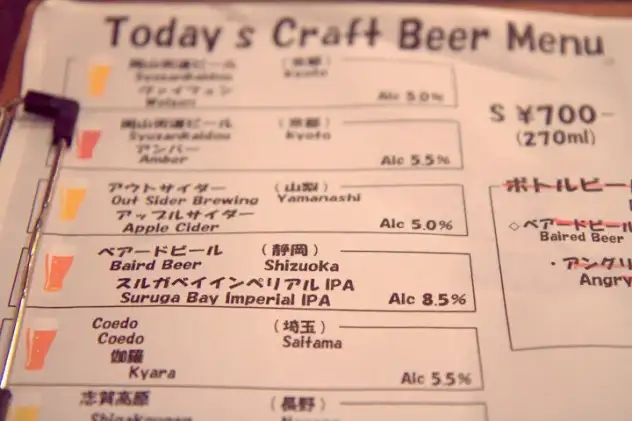 Today s Craft Beer Menu
ビール (京都)
Kyoto
Alc 5.0%
ビール (京都)
Kyoto
アンバー
Amber
Alc 5.5%
アウトサイダー (山梨)
Out Sider Brewing Yamanashi
アップルサイダー
Apple Cider
Alc 5.0%
ベアードビール (静岡)
Baird Beer Shizuoka
スルガベイインペリアル IPA
Suruga Bay Imperial IPA
Alc 8.5%
Coedo (埼玉)
Coedo Saitama
伽羅
Kyara
Alc 5.5%
志賀高原 (長野)
S ¥700-
(270ml)
ボトルビール
◇ベアードビール
Baired Beer
・アングリ
Angry